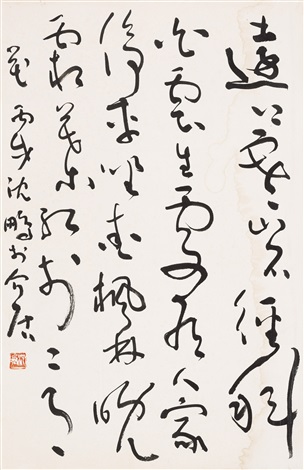 遠上寒山石徑斜
白雲生處有人家
停車坐愛楓林晚
霜葉紅於二月
花 丙戌沈鵬書介居